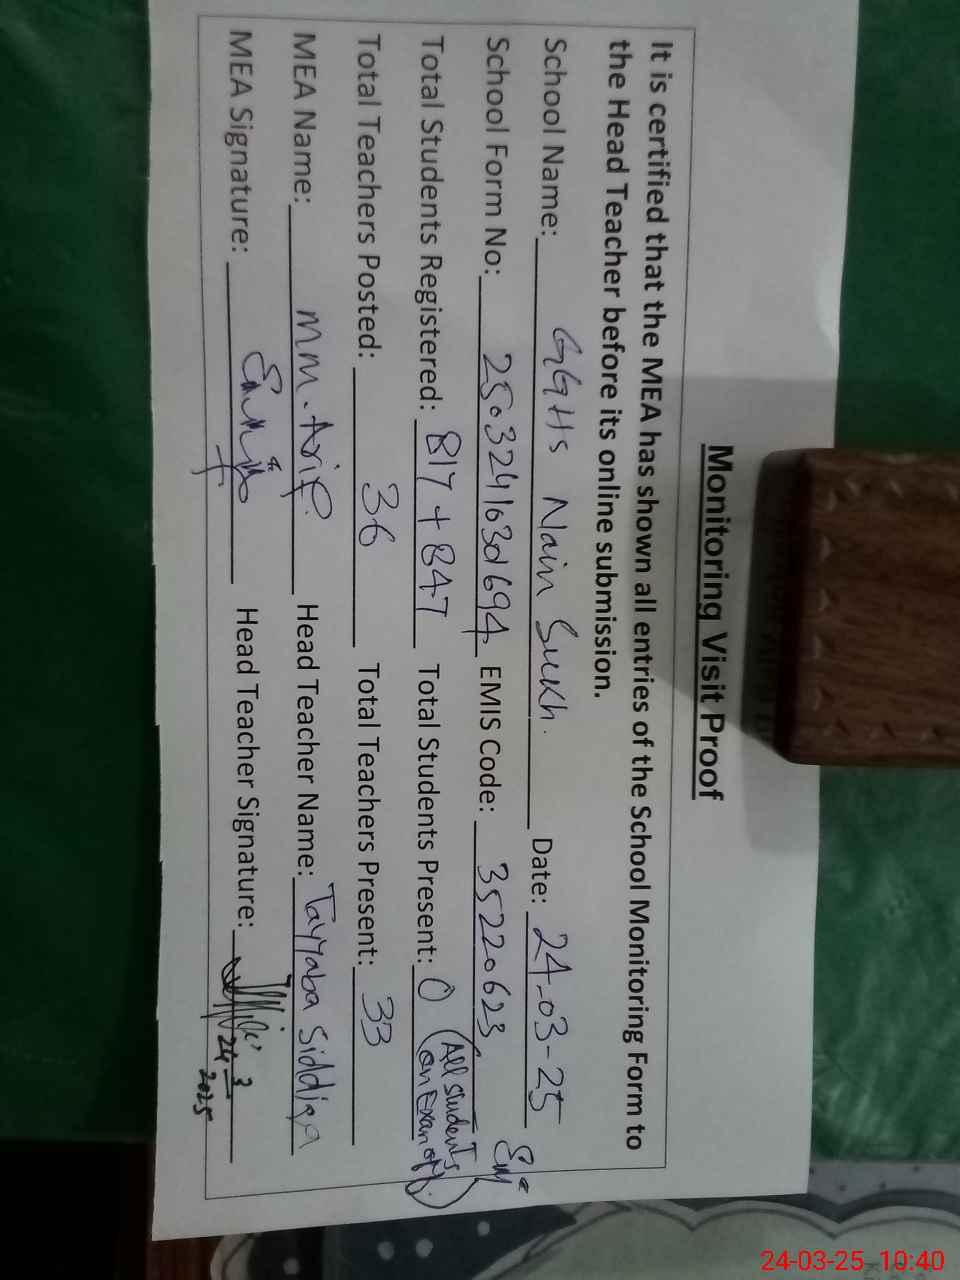 Monitoring Visit Proof
It is certified that the MEA has shown all entries of the School Monitoring Form to
the Head Teacher before its online submission.
School Name: GGHS Nain Sukh. Date: 24-03-25
School Form No: 250324163d1694 EMIS Code: 35220623
Total Students Registered: 817 + 847 Total Students Present: 0 (All students
on Exam off.)
Total Teachers Posted: 36 Total Teachers Present: 33
MEA Name: MM. Arif. Head Teacher Name: Tayyaba Siddiqa
MEA Signature: Head Teacher Signature:
24 3
2025
24-03-25 10:40